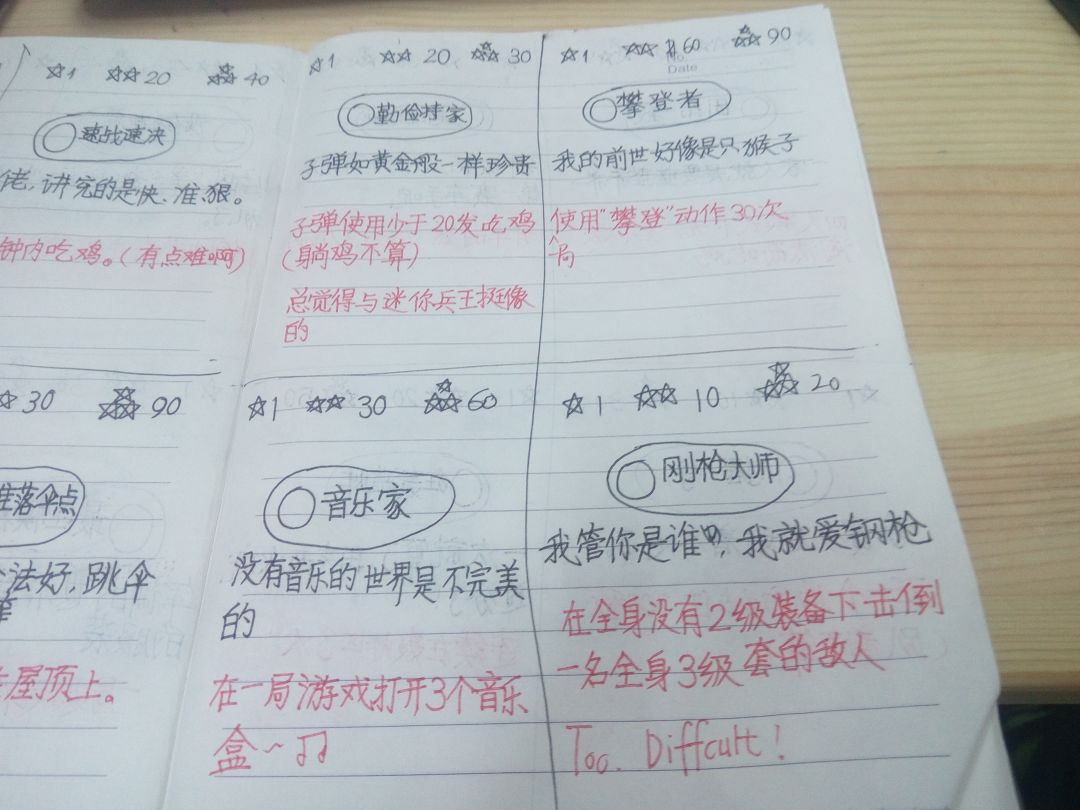 ☆1 ☆☆20 ☆☆☆40
速战速决
佬,讲究的是快、准、狠。
钟内吃鸡。(有点难啊)
☆1 ☆☆ 20 ☆☆☆ 30
勤俭持家
子弹如黄金般一样珍贵
子弹使用少于20发吃鸡
(躺鸡不算)
总觉得与迷你兵王挺像
的
☆1 ☆☆ 60 ☆☆☆90
No.
Date
攀登者
我的前世好像是只猴子
使用"攀登"动作30次
^局
☆30 ☆☆☆90
准落伞点
法好,跳伞
屋顶上。
☆1 ☆☆ 30 ☆☆☆60
音乐家
没有音乐的世界是不完美
的
在一局游戏打开3个音乐
盒~♫
☆1 ☆☆ 10 ☆☆☆ 20
刚枪大师
我管你是谁,我就爱钢枪
在全身没有2级装备下击倒
一名全身3级套的敌人
Too. Diffcult!